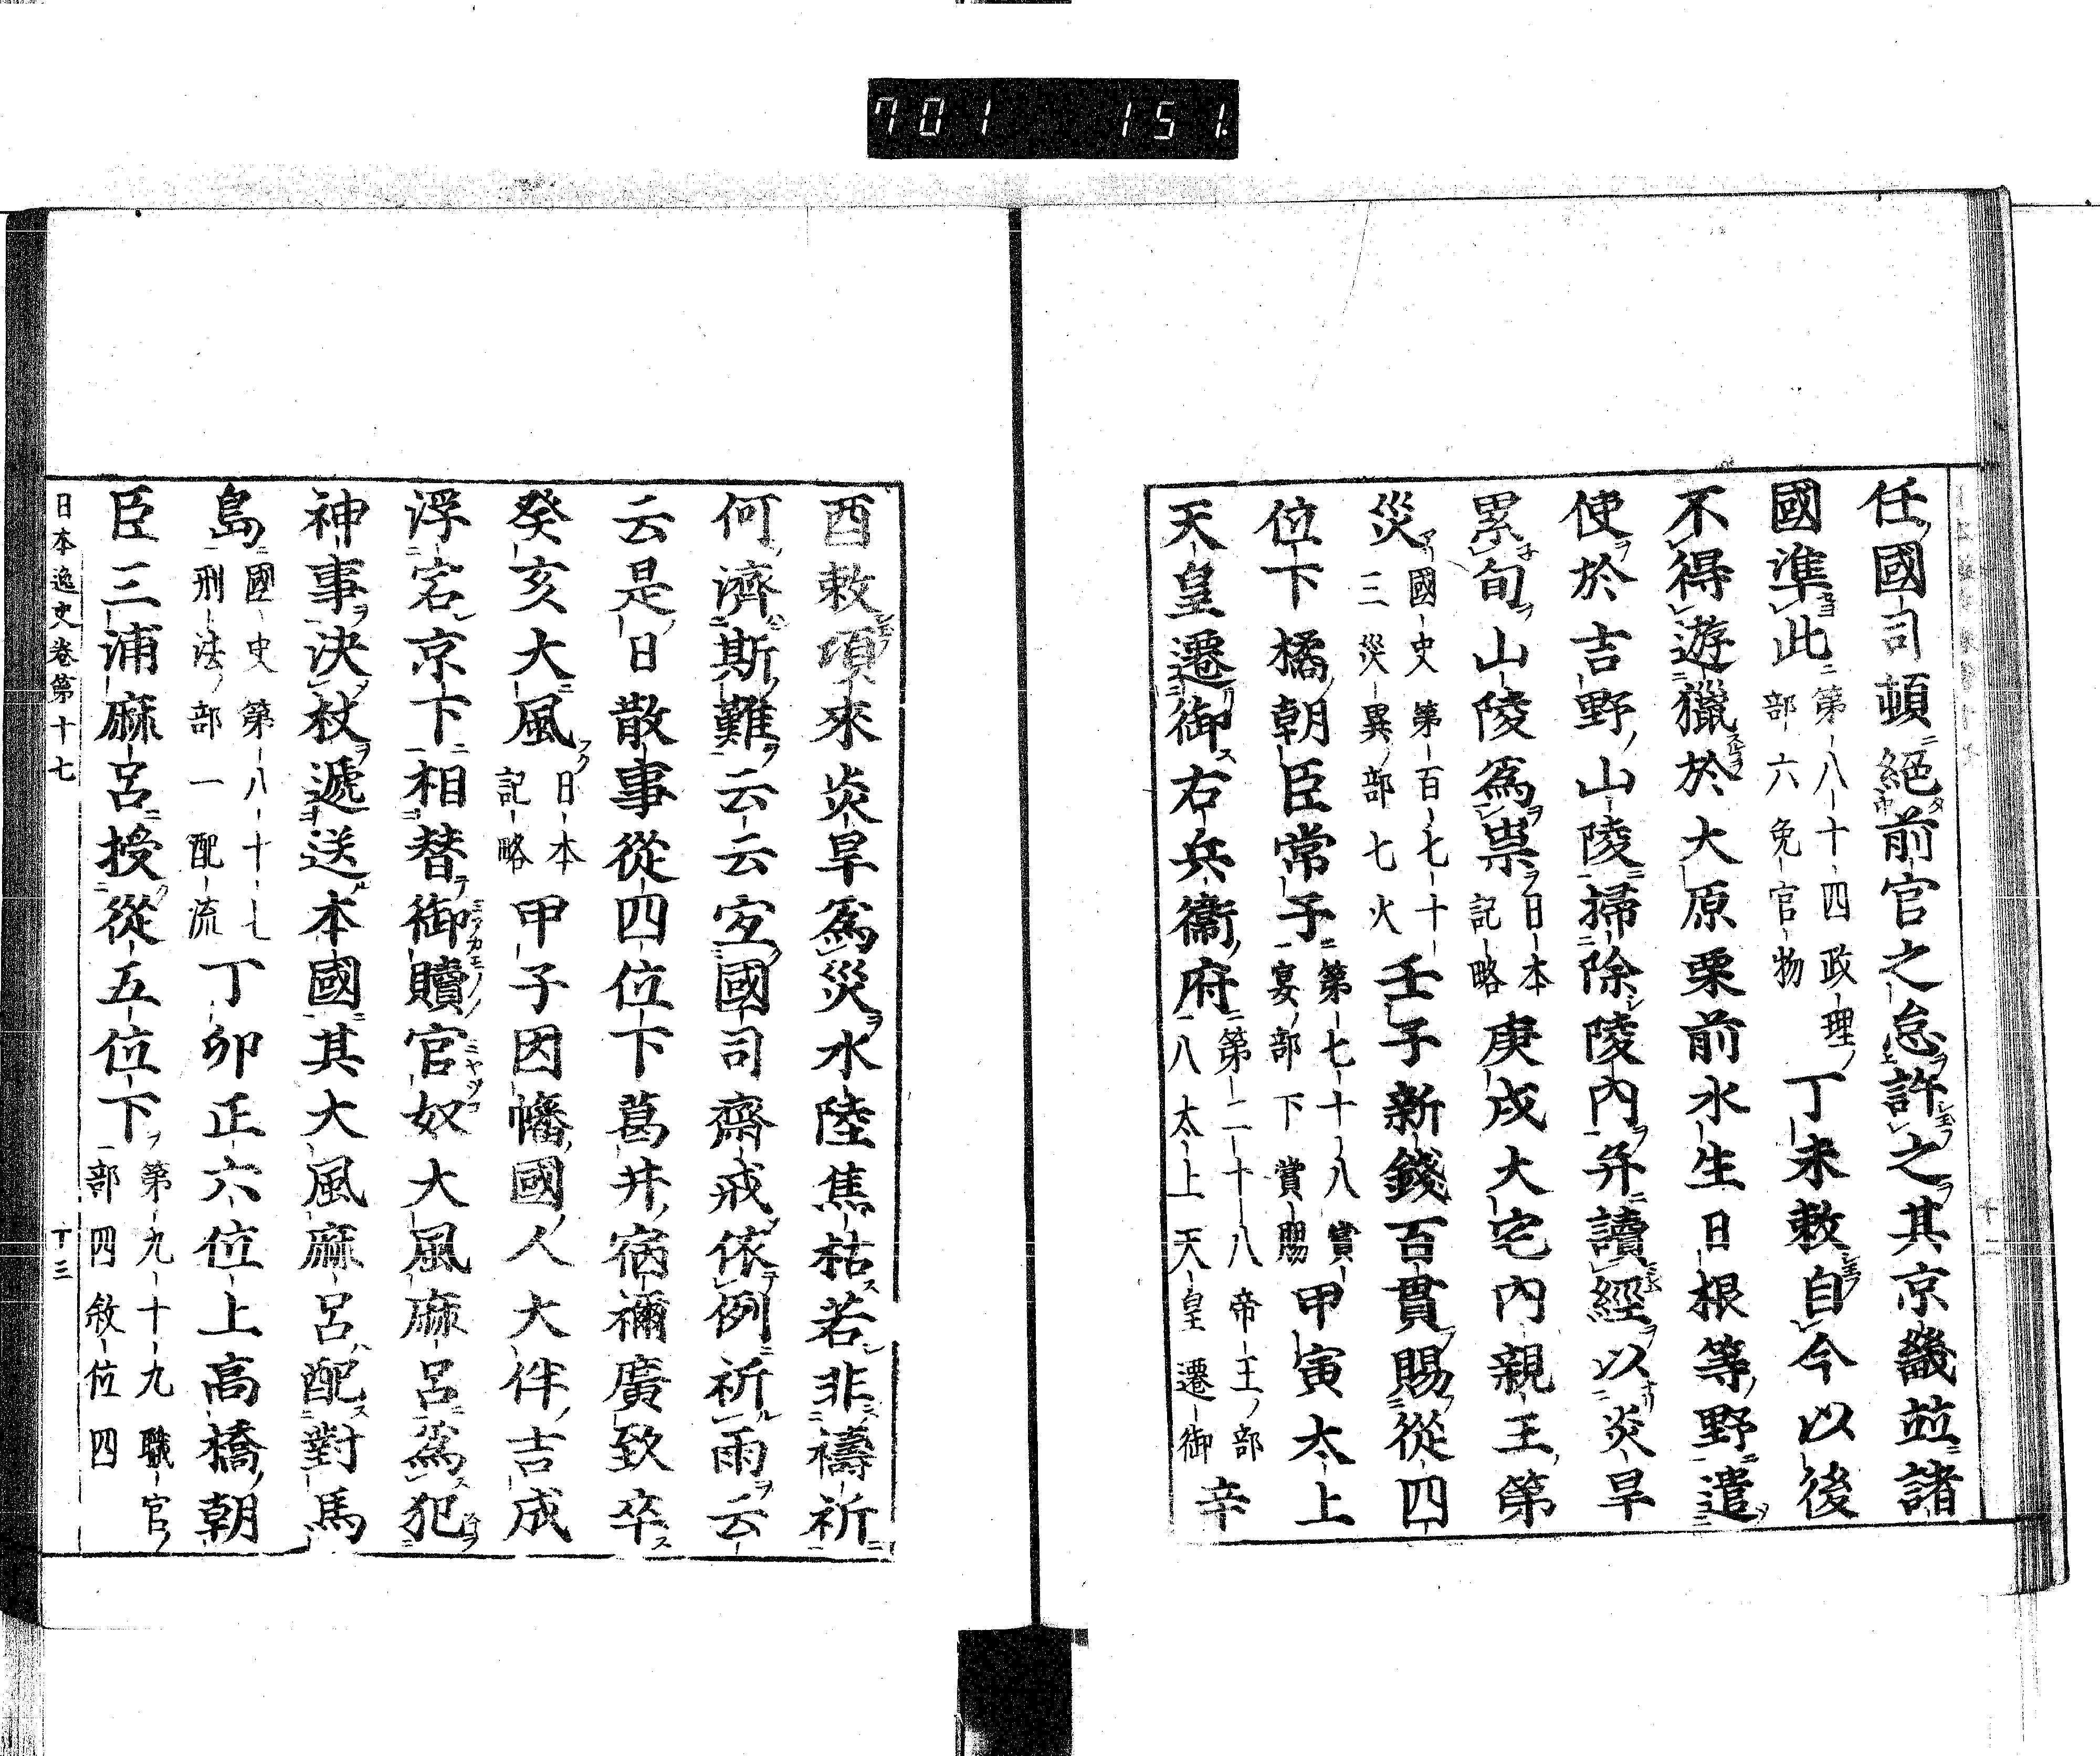 701 151
任國司頓絕前官之怠許之其京畿並諸
國準此第八十四政理部六免官物丁未敕自今以後
不得遊獵於大原栗前水生日根等野遣
使於吉野山陵掃除陵內并讀經以炎旱
累旬山陵爲祟日本記略庚戌大宅內親王第
災國史第百七十三災異部七火壬子新錢百貫賜從四
位下橘朝臣常子第七十八賞宴部下賞賜甲寅太上
天皇遷御右兵衞府第二十八帝王部八太上天皇遷御辛
酉敕項來炎旱爲災水陸焦枯若非禱祈
何濟斯難云云宜國司齋戒依例祈雨云
云是日散事從四位下葛井宿禰廣致卒
癸亥大風日本記略甲子因幡國人大伴吉成
浮宕京下相替御贖官奴大風麻呂爲犯
神事決杖遞送本國其大風麻呂配對馬
島國史第八十七刑法部一配流丁卯正六位上高橋朝
臣三浦麻呂授從五位下第九十九職官部四敘位四
日本逸史卷第十七 十三